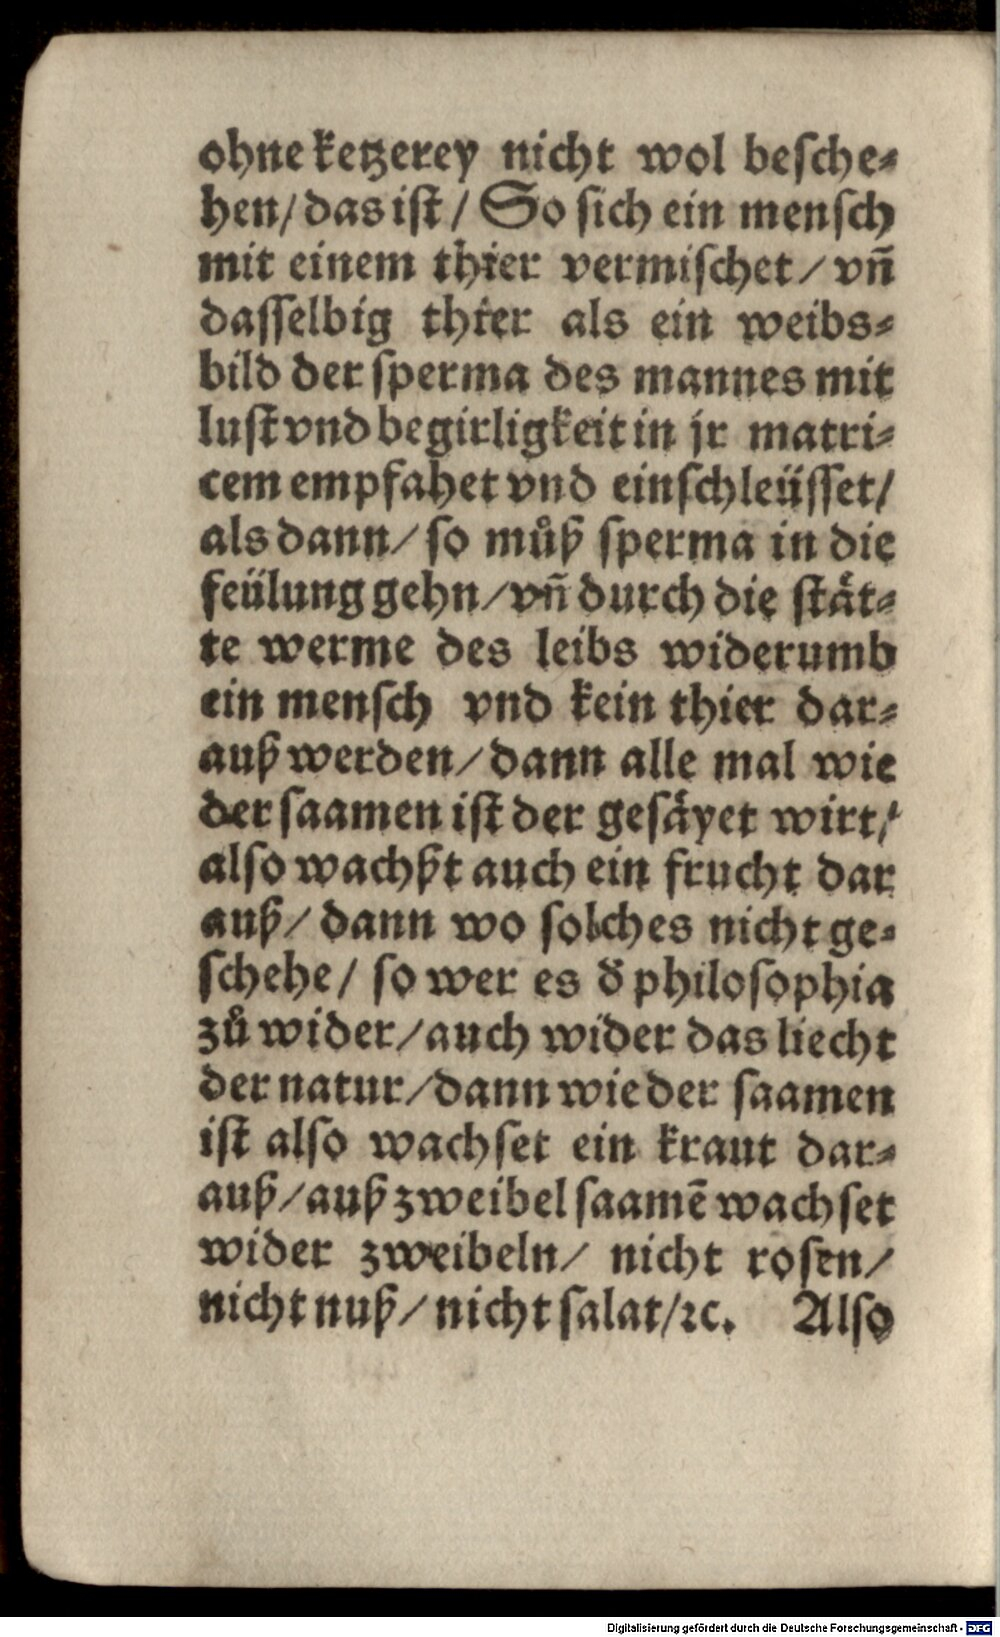 ohne ketzerey nicht wol besche⸗
hen/ das ist/ So sich ein mensch
mit einem thier vermischet/ vn̄
dasselbig thier als ein weibs⸗
bild der sperma des mannes mit
lust vnd begirligkeit in jr matri⸗
cem empfahet vnd einschleüsset/
als dann/ so můß sperma in die
feülung gehn/ vn̄ durch die stät⸗
te werme des leibs widerumb
ein mensch vnd kein thier dar⸗
auß werden/ dann alle mal wie
der saamen ist der gesäyet wirt/
also wachßt auch ein frucht dar
auß/ dann wo solches nicht ge⸗
schehe/ so wer es d̄ philosophia
zů wider/ auch wider das liecht
der natur/ dann wie der saamen
ist also wachset ein kraut dar⸗
auß/ auß zweibel saamē wachset
wider zweibeln/ nicht rosen/
nicht nuß/ nicht salat/ ꝛc. Also
Digitalisierung gefördert durch die Deutsche Forschungsgemeinschaft - DFG